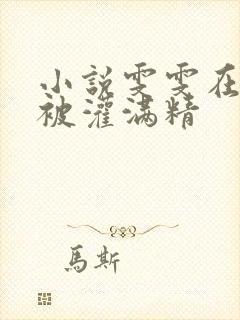 小說雯雯在
被灌滿精
馬斯